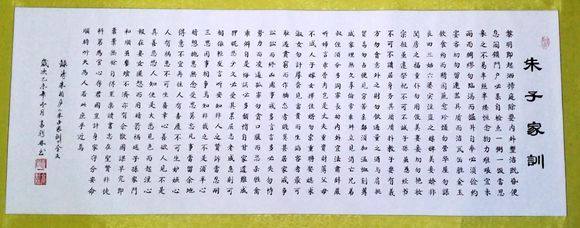 朱子家訓
黎明即起洒掃庭除要內外整潔既昏便
息關鎖門戶必親自檢點一粥一飯當思
來之不易半絲半縷恒念物力維艱宜未
雨而綢繆毋臨渴而掘井自奉必須儉約
宴客切勿留連器具質而潔瓦缶勝金玉
飲食約而精園蔬愈珍饈勿營華屋勿謀
良田三姑六婆實淫盜之媒婢美妾嬌非
閨房之福奴僕勿用俊美妻妾切忌艷妝祖
宗雖遠祭祀不可不誠子孫雖愚經書
不可不讀居身務期質樸教子要有義
方勿貪意外之財勿飲過量之酒與肩挑
貿易勿佔便宜見貧苦親鄰須多溫恤刻薄
成家理無久享倫常乖舛立見消亡兄弟
叔侄須分多潤寡長幼內外宜法肅辭嚴
聽婦言乖骨肉豈是丈夫重資財薄父母
不成人子嫁女擇佳婿毋索重聘娶媳求
淑女勿計厚奩見富貴而生諂容者最可
恥遇貧窮而作驕態者賤莫甚居家戒爭
訟訟則終凶處世戒多言言多必失勿恃
勢力而凌逼孤寡毋貪口腹而恣殺牲禽
乖僻自是悔誤必多頹惰自甘家道難成
狎昵惡少久必受其累屈志老成急則可
相依輕聽發言安知非人之譖訴當忍耐
三思因事相爭焉知非我之不是須平心
暗想施惠無念受恩莫忘凡事當留餘地
得意不宜再往人有喜慶不可生妒嫉心
人有禍患不可生喜幸心善欲人見不是
真善惡恐人知便是大惡見色而起淫心
報在妻女匿怨而用暗箭禍延子孫家門
和順雖饔飧不繼亦有餘歡國課早完即
囊橐無餘自得至樂讀書志在聖賢非徒
科第為官心存君國豈計身家守分安命
順時聽天為人若此庶乎近焉
錄清朱用純朱子家訓全文
歲次乙未年